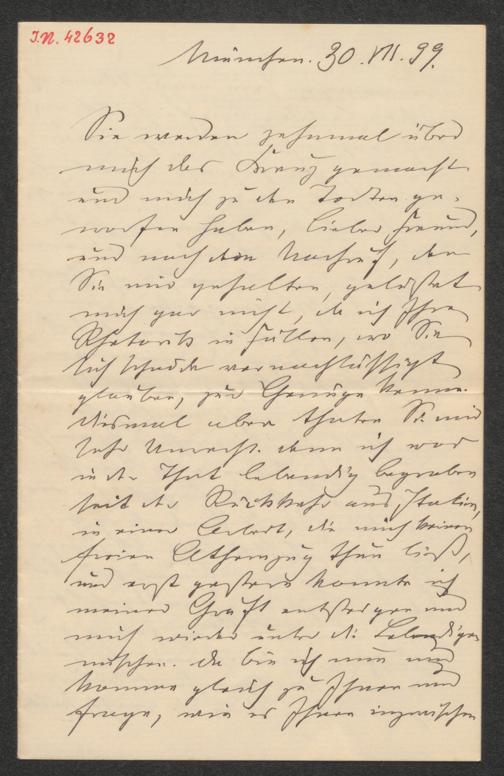 I.N. 42632
München. 30. VII. 99.
Sie werden zehnmal über
mich das Kreuz gemacht
und mich zu den Todten ge-
worfen haben, lieber Freund,
und nach dem Nachruf, den
Sie mir gehalten, gelüstet
mich gar nicht, da ich Ihre
Rhetorik in Fällen, wo Sie
sich schnöde vernachlässigt
glauben, zur Genüge kenne.
Diesmal aber thaten Sie mir
sehr Unrecht. Denn ich war
in der That lebendig begraben
seit der Rückkehr aus Italien,
in einer Arbeit, die mich keinen
freien Athemzug thun ließ,
und erst gestern konnte ich
meiner Gruft entsteigen und
mich wieder unter die Lebendigen
mischen. Da bin ich nun und
komme gleich zu Ihnen und
frage, wie es Ihnen inzwischen